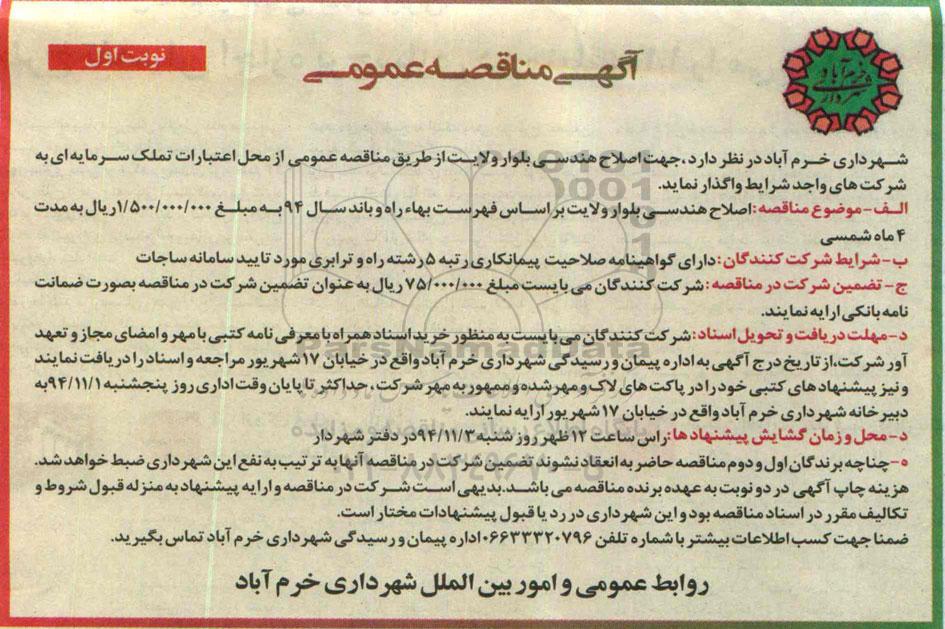 نوبت اول
آگهی مناقصه عمومی
خرم آباد
شهرداری
شهرداری خرم آباد در نظر دارد، جهت اصلاح هندسی بلوار ولایت از طریق مناقصه عمومی از محل اعتبارات تملک سرمایه ای به
شرکت های واجد شرایط واگذار نماید.
الف-موضوع مناقصه: اصلاح هندسی بلوار ولایت بر اساس فهرست بهاء راه و باند سال ۹۴ به مبلغ ۱/۵۰۰/۰۰۰/۰۰۰ ریال به مدت
۴ ماه شمسی
ب-شرایط شرکت کنندگان: دارای گواهینامه صلاحیت پیمانکاری رتبه ۵ رشته راه و ترابری مورد تایید سامانه ساجات
ج-تضمین شرکت در مناقصه: شرکت کنندگان می بایست مبلغ ۷۵/۰۰۰/۰۰۰ ریال به عنوان تضمین شرکت در مناقصه بصورت ضمانت
نامه بانکی ارایه نمایند.
د-مهلت دریافت و تحویل اسناد: شرکت کنندگان می بایست به منظور خرید اسناد همراه با معرفی نامه کتبی با مهر و امضای مجاز و تعهد
آور شرکت، از تاریخ درج آگهی به اداره پیمان و رسیدگی شهرداری خرم آباد واقع در خیابان ۱۷ شهریور مراجعه و اسناد را دریافت نمایند
و نیز پیشنهادهای کتبی خود را در پاکت های لاک و مهر شده و ممهور به مهر شرکت، حداکثر تا پایان وقت اداری روز پنجشنبه ۹۴/۱۱/۱ به
دبیرخانه شهرداری خرم آباد واقع در خیابان ۱۷ شهریور ارایه نمایند.
د-محل و زمان گشایش پیشنهادها: راس ساعت ۱۲ ظهر روز شنبه ۹۴/۱۱/۳ در دفتر شهردار
ه-چناچه برندگان اول و دوم مناقصه حاضر به انعقاد نشوند تضمین شرکت در مناقصه آنها به ترتیب به نفع این شهرداری ضبط خواهد شد.
هزینه چاپ آگهی در دو نوبت به عهده برنده مناقصه می باشد. بدیهی است شرکت در مناقصه و ارایه پیشنهاد به منزله قبول شروط و
تکالیف مقرر در اسناد مناقصه بود و این شهرداری در رد یا قبول پیشنهادات مختار است.
ضمنا جهت کسب اطلاعات بیشتر با شماره تلفن ۰۶۶۳۳۳۲۰۷۹۶ اداره پیمان و رسیدگی شهرداری خرم آباد تماس بگیرید.
روابط عمومی و امور بین الملل شهرداری خرم آباد